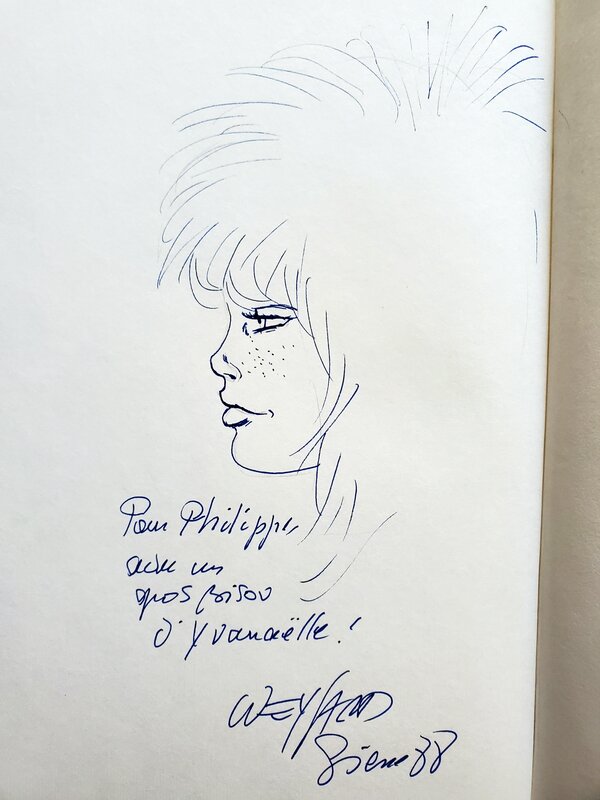 Pour Philippe,
avec un
gros bisou
d'Yvanaëlle !
WEYLAND
88